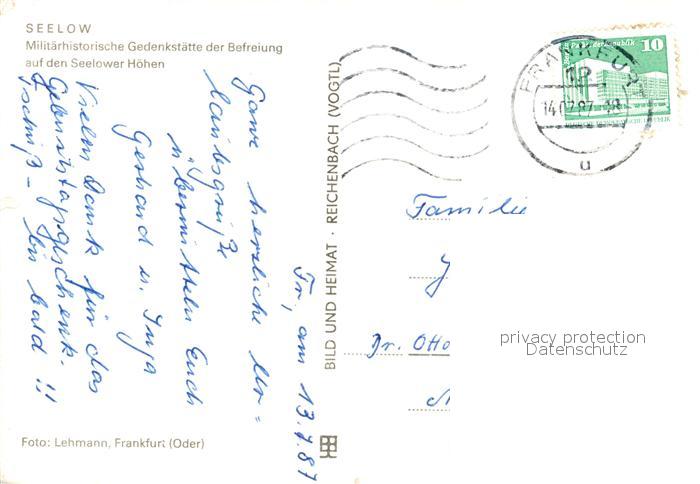 SEELOW
Militärhistorische Gedenkstätte der Befreiung
auf den Seelower Höhen
Fr, am 13.7.87
Ganz herzliche Ur=
laubsgrüße
übermitteln Euch
Gerhard u. Inga
Vielen Dank für das
Geburtstagsgeschenk.
Tschüß - bis bald !!!
Foto: Lehmann, Frankfurt (Oder)
BILD UND HEIMAT · REICHENBACH (VOGTL)
10
FRANKFURT
14.07.87-18
u
Familie
Dr. Otto
privacy protection
Datenschutz